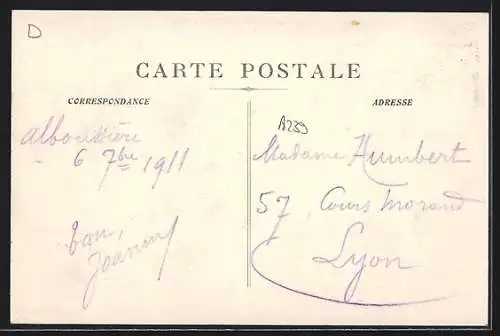 D
CARTE POSTALE
CORRESPONDANCE
Alboussière
6 7bre 1911
Joanny
ADRESSE
A239
Madame Humbert
57, Cours Morand
Lyon